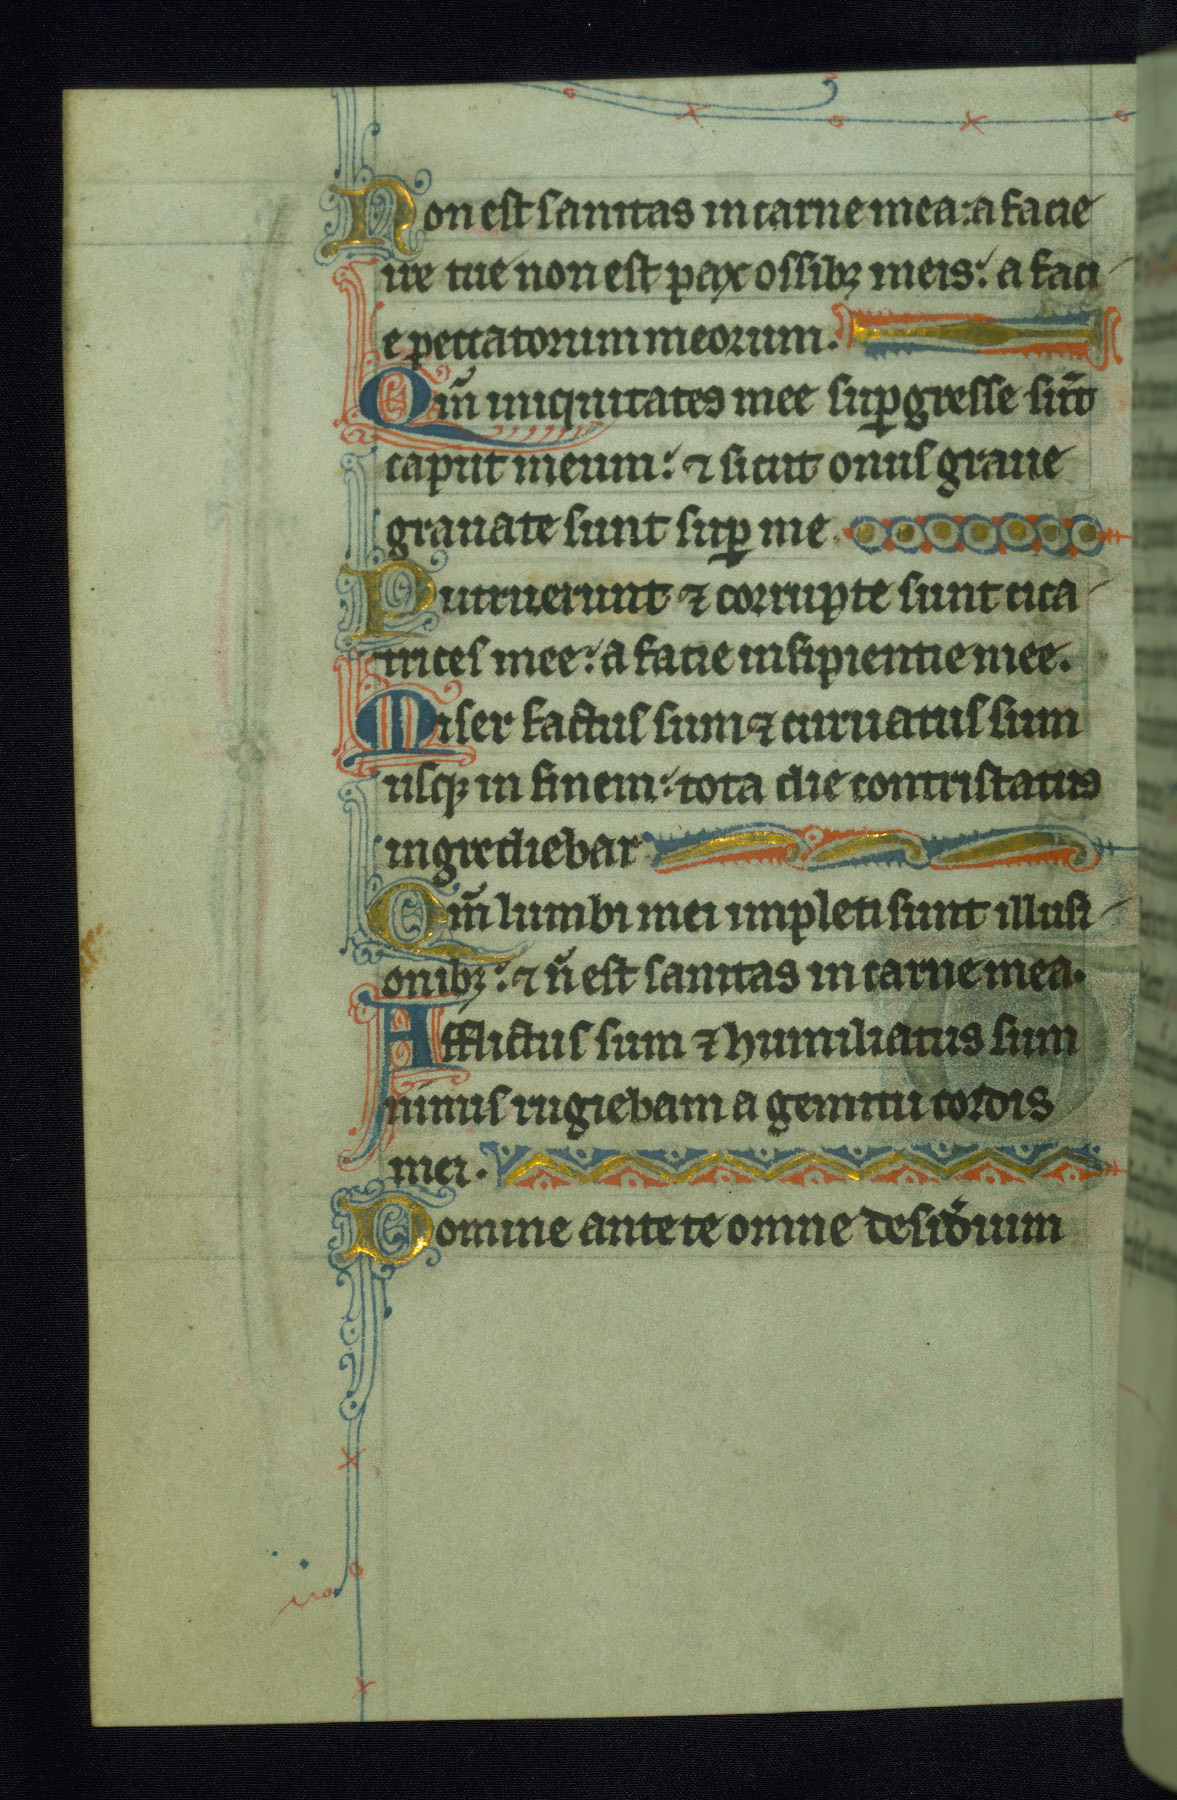 Non est sanitas in carne mea: a facie
ire tue non est pax ossibꝫ meis: a faci
e peccatorum meorum.
Qm̄ iniquitates mee suꝑgresse sūt
caput meum: ⁊ sicut onus graue
grauate sunt suꝑ me.
Putruerunt ⁊ corrupte sunt cica
trices mee: a facie insipientie mee.
Miser factus sum ⁊ curuatus sum
usqꝫ in finem: tota die contristatus
ingrediebar
Qm̄ lumbi mei impleti sunt illusi
onibꝫ: ⁊ n̄ est sanitas in carne mea.
Afflictus sum ⁊ humiliatus sum
nimis rugiebam a gemitu cordis
mei.
Domine ante te omne desid̓ium